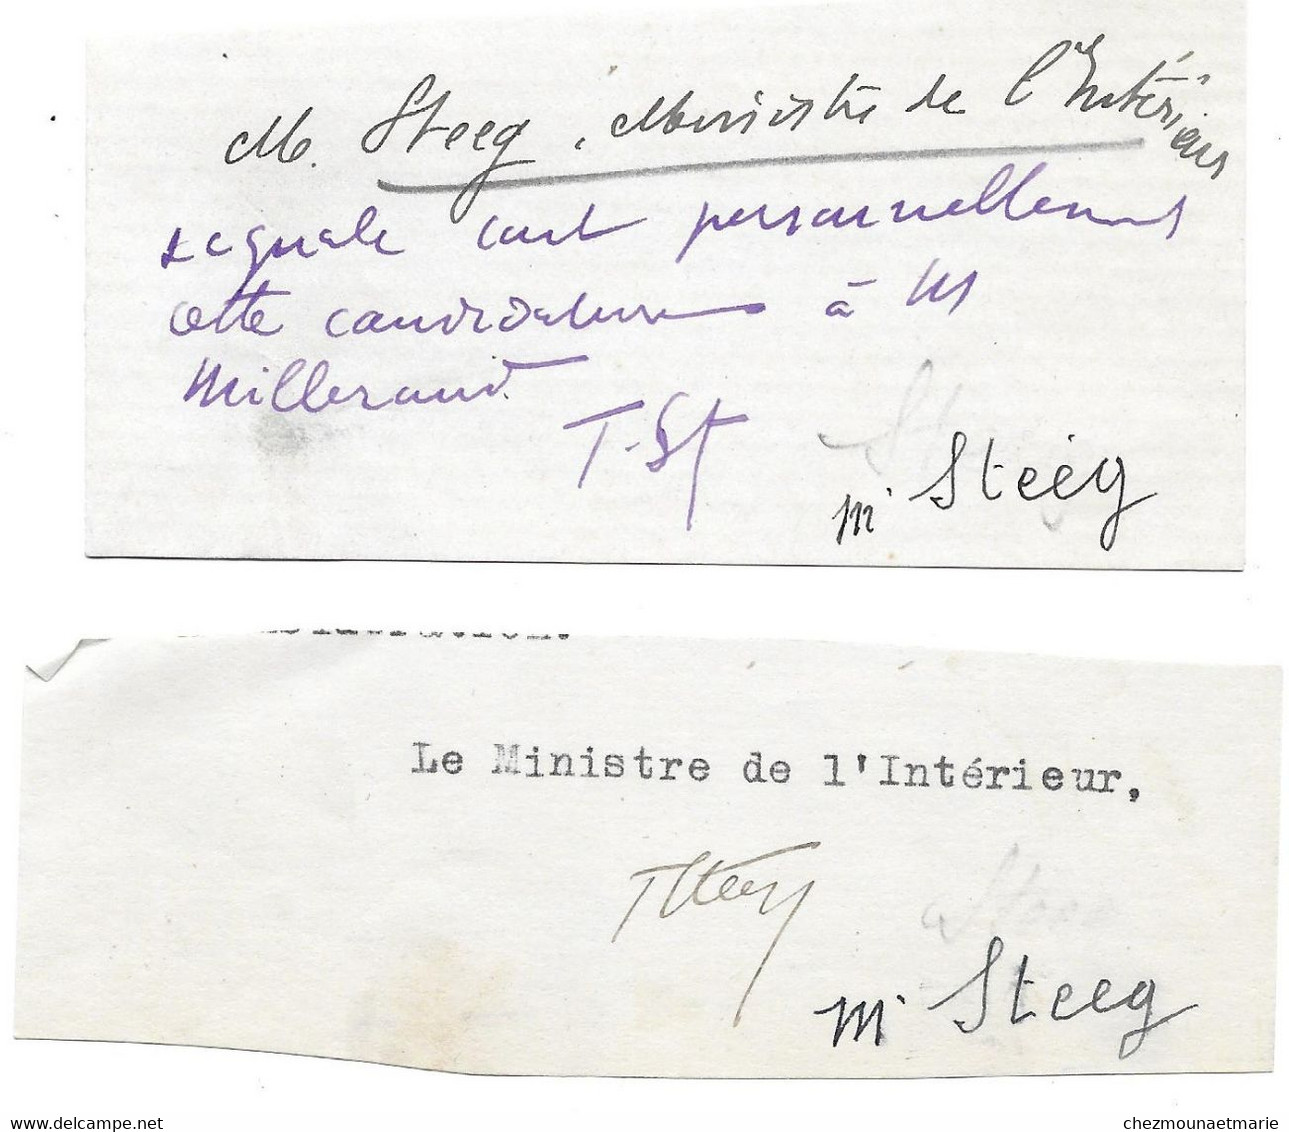 M. Steeg, Ministre de l'Intérieur
signale tout personnellement
cette candidature à M
Millerand.
T. St
Mr Steeg
Le Ministre de l'Intérieur,
T Steeg
Mr Steeg
chezmounaetmarie